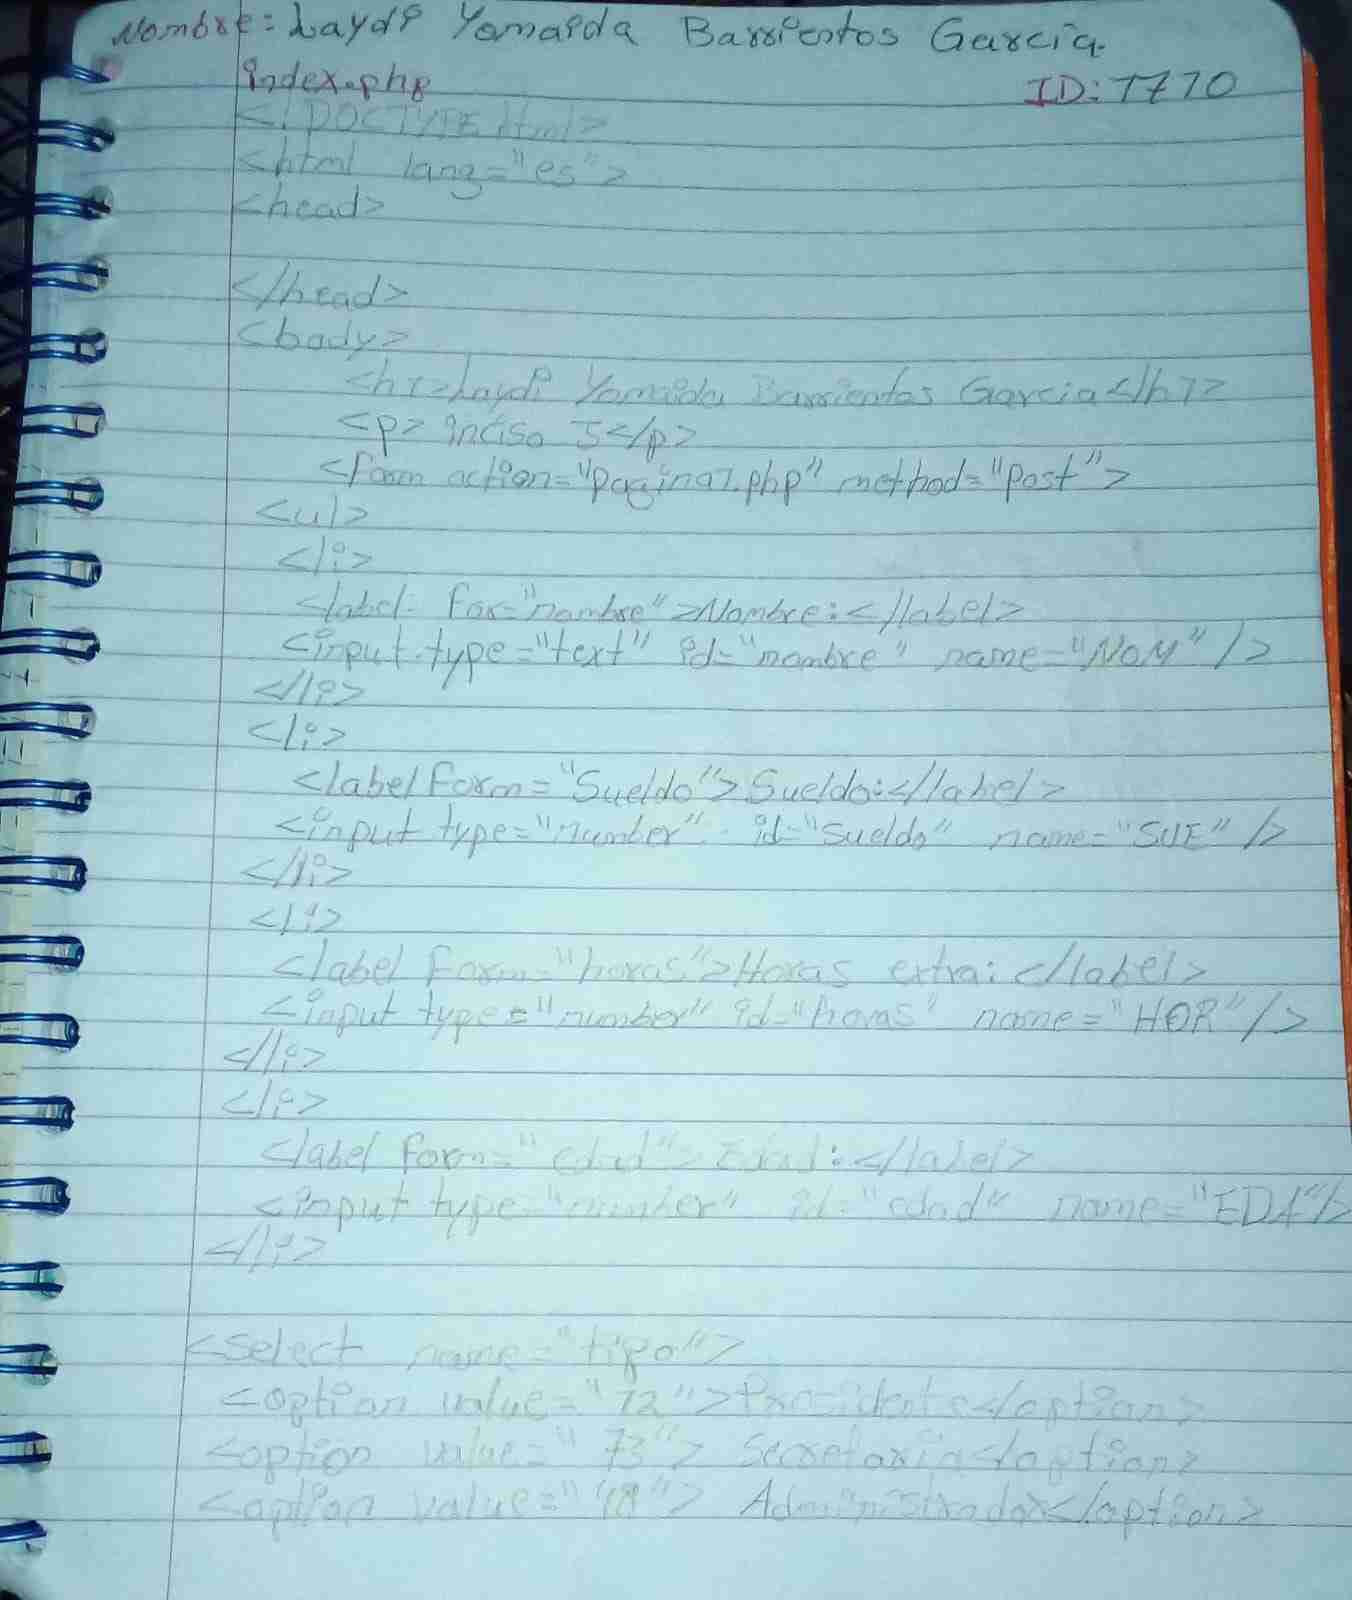 Nombre: Laydi Yomaida Barrientos García.
index.php
ID: 1710
<!DOCTYPE html>
<html lang="es">
<head>
</head>
<body>
<h1>Laydi Yomaida Barrientos Garcia</h1>
<p> inciso 5</p>
<form action="pagina1.php" method="post">
<ul>
<li>
<label for="nombre">Nombre:</label>
<input type="text" id="nombre" name="NOM" />
</li>
<li>
<label form="Sueldo">Sueldo:</label>
<input type="number" id="Sueldo" name="SUE" />
</li>
<li>
<label form="horas">Horas extra:</label>
<input type="number" id="horas" name="HOR"/>
</li>
<li>
<label form="edad">Edad:</label>
<input type="number" id="edad" name="EDA"/>
</li>
<select name="tipo">
<option value="12">Presidente</option>
<option value="13"> Secretaria</option>
<option value="18"> Administrador</option>